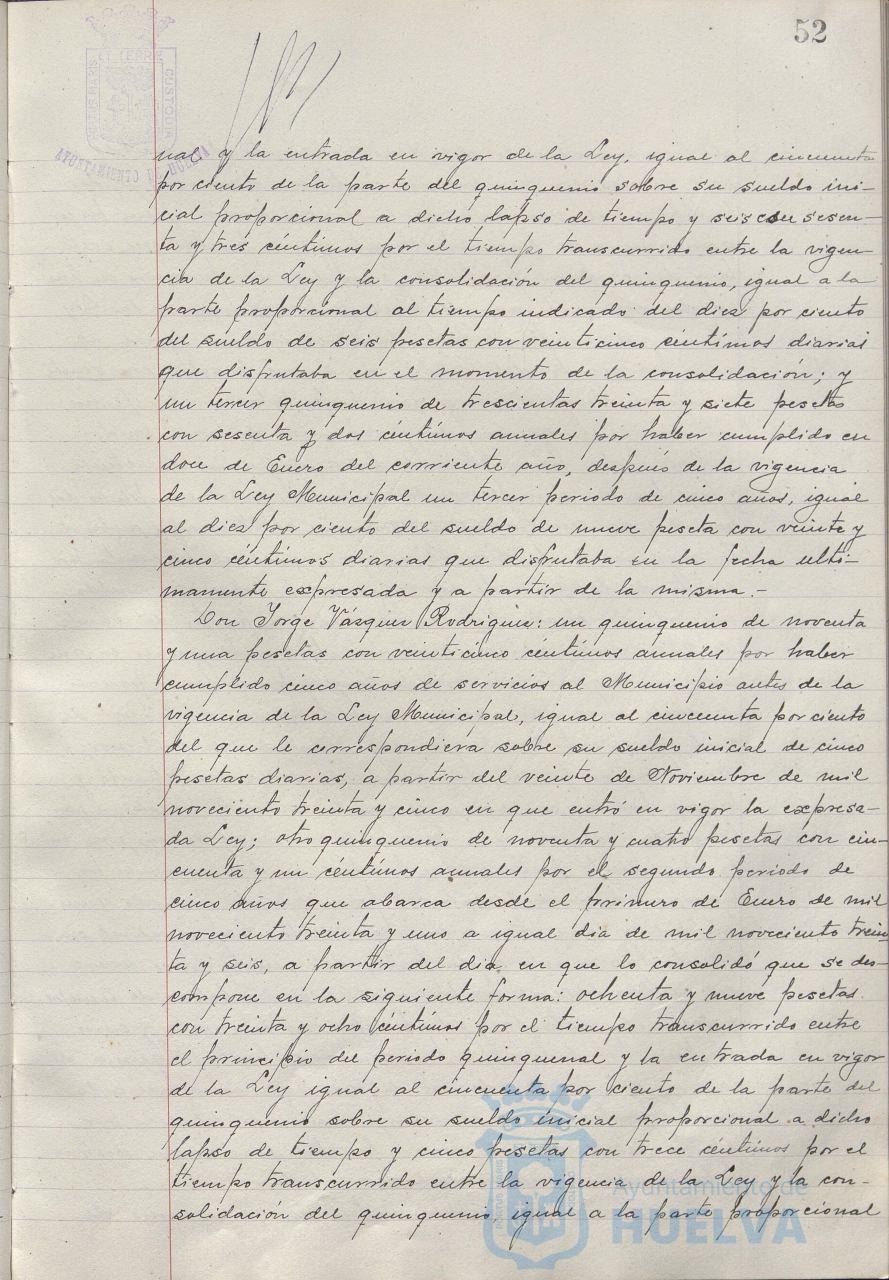 52
PORTUS MARIS ET TERRE CUSTODIA
AYUNTAMIENTO HUELVA
nal y la entrada en vigor de la Ley, igual al cincuenta
por ciento de la parte del quinquenio sobre su sueldo ini-
cial proporcional a dicho lapso de tiempo y seis con sesen-
ta y tres céntimos por el tiempo transcurrido entre la vigen-
cia de la Ley y la consolidación del quinquenio, igual a la
parte proporcional al tiempo indicado del diez por ciento
del sueldo de seis pesetas con veinticinco céntimos diarias
que disfrutaba en el momento de la consolidación; y
un tercer quinquenio de trescientas treinta y siete pesetas
con sesenta y dos céntimos annales por haber cumplido en
doce de Enero del corriente año, después de la vigencia
de la Ley Municipal un tercer periodo de cinco años, igual
al diez por ciento del sueldo de nueve peseta con veinte y
cinco céntimos diarias que disfrutaba en la fecha ulti-
mamente expresada y a partir de la misma.-
Don Jorge Vázquez Rodríguez: un quinquenio de noventa
y una pesetas con veinticinco céntimos annales por haber
cumplido cinco años de servicios al Municipio antes de la
vigencia de la Ley Municipal, igual al cincuenta por ciento
del que le correspondiera sobre su sueldo inicial de cinco
pesetas diarias, a partir del veinte de Noviembre de mil
noveciento treinta y cinco en que entró en vigor la expresa-
da Ley; otro quinquenio de noventa y cuatro pesetas con cin-
cuenta y un céntimos annales por el segundo periodo de
cinco años que abarca desde el primero de Enero de mil
noveciento treinta y uno a igual dia de mil noveciento trein-
ta y seis, a partir del dia en que lo consolidó que se des-
compone en la siguiente forma: ochenta y nueve pesetas
con treinta y ocho céntimos por el tiempo transcurrido entre
el principio del periodo quinquenal y la entrada en vigor
de la Ley igual al cincuenta por ciento de la parte del
quinquenio sobre su sueldo inicial proporcional a dicho
lapso de tiempo y cinco pesetas con trece céntimos por el
tiempo transcurrido entre la vigencia de la Ley y la con-
solidación del quinquenio igual a la parte proporcional
Ayuntamiento de
HUELVA